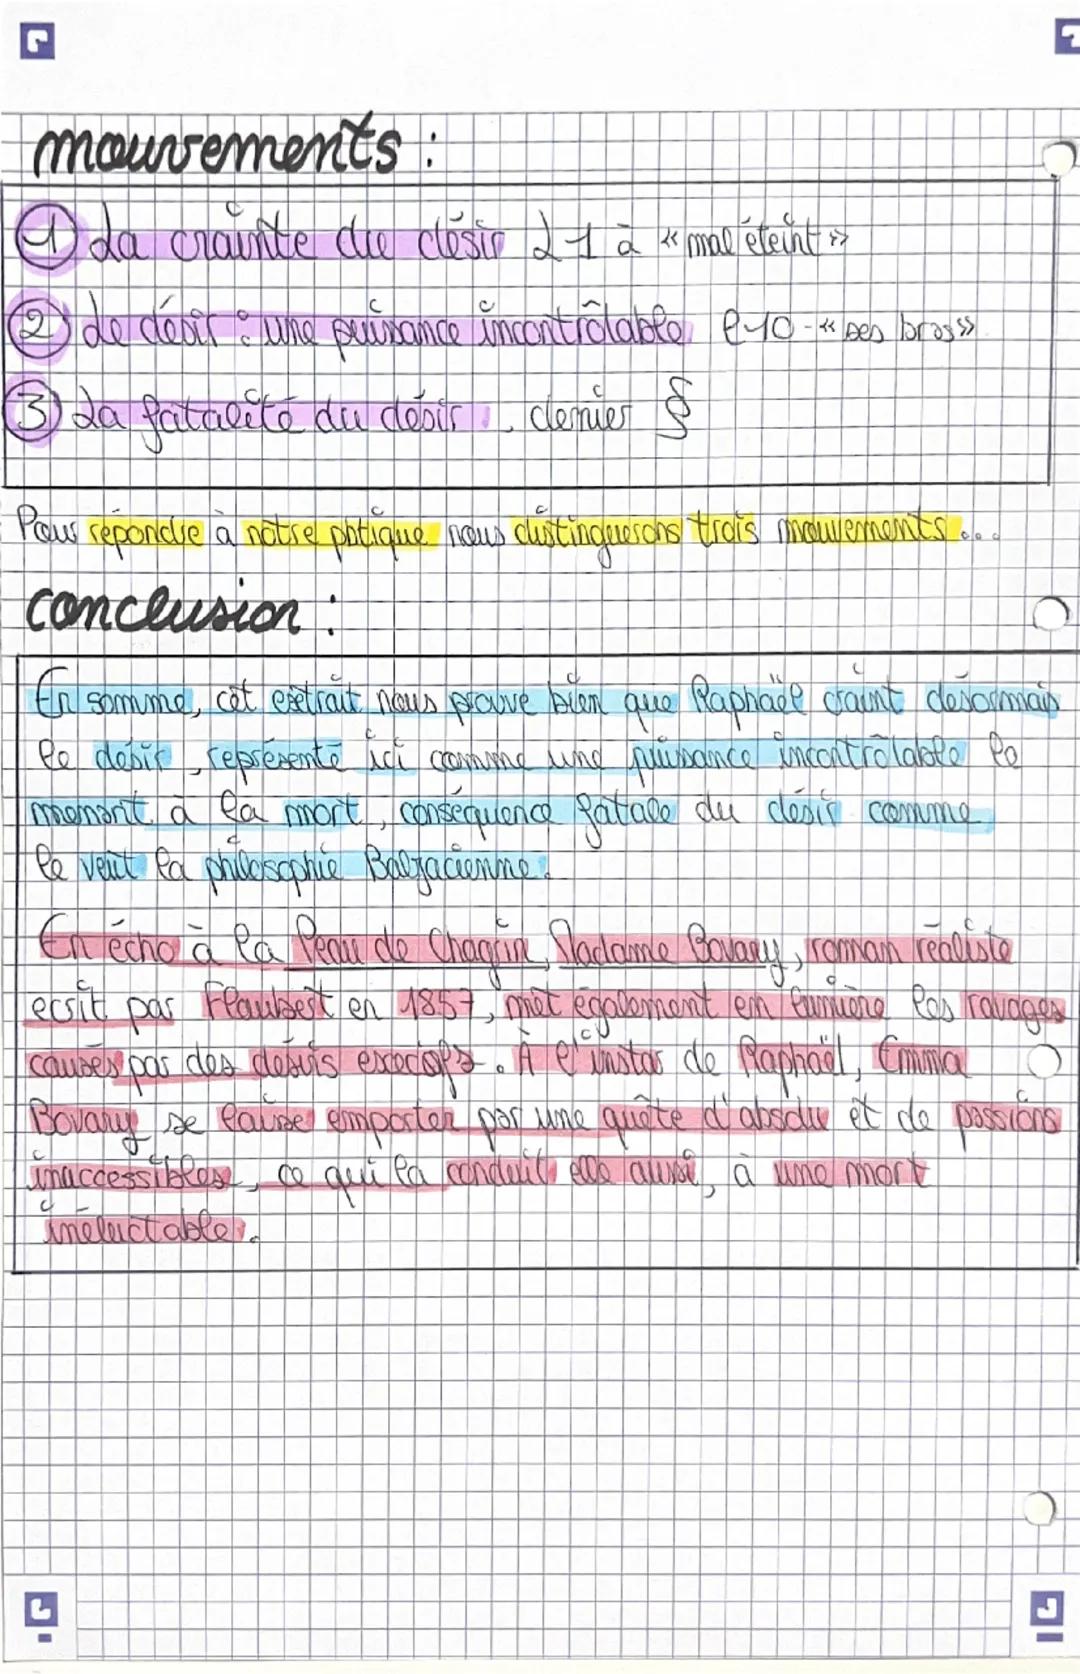 mouvements :
1 La crainte du désir L1 à « mal éteint »
2 Le désir : une puissance incontrôlable l 10 - « ses bras »
3 La fatalité du désir, dernier §
Pour répondre à notre pbtique nous distinguerons trois mouvements...
conclusion :
En somme, cet extrait nous prouve bien que Raphaël craint désormais
le désir, représenté ici comme une puissance incontrôlable le
menant à la mort, conséquence fatale du désir comme
le veut la philosophie Balzacienne.
En écho à la Peau de Chagrin, Madame Bovary, roman réaliste
écrit par Flaubert en 1857, met également en lumière les ravages
causés par des désirs excessifs. À l'instar de Raphaël, Emma
Bovary se laisse emporter par une quête d'absolu et de passions
inaccessibles, ce qui la conduit elle aussi, à une mort
inéluctable.